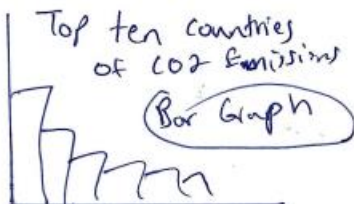 Top ten countries
of CO2 Emissions
Bar Graph